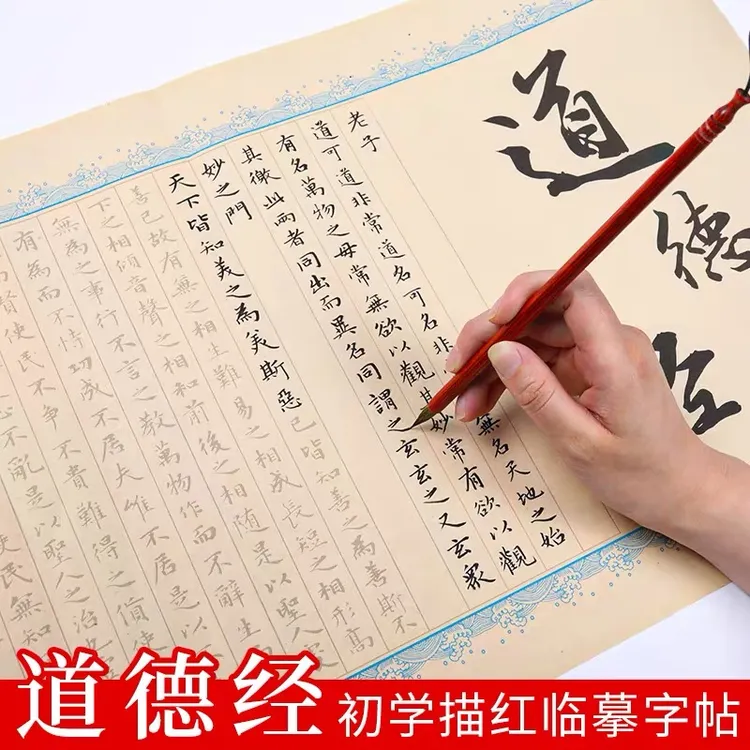 道德经
老子
道可道非常道名可名非無名天地之始
有名萬物之母常無欲以觀其妙常有欲以觀
其徼此兩者同出而異名同謂之玄玄之又玄眾
妙之門
天下皆知美之為美斯惡已皆知善之為善斯不
善已故有無之相生難易之相成長短之相形高
下之相傾音聲之相和前後之相随是以聖人處
無為之事行不言之教萬物作而不辭生
有為而不恃功成不居夫惟不居是以
賢使民不争不貴難得之貨使
心不亂是以聖人之治
使民無知
道德经 初学描红临摹字帖